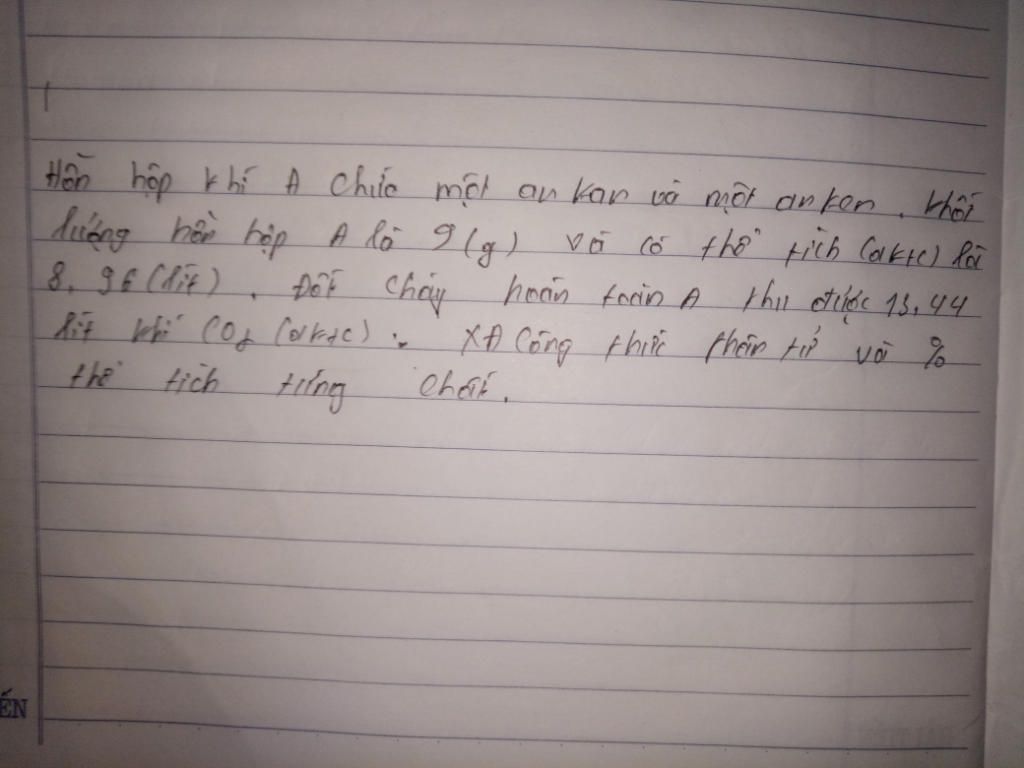 Hỗn hợp khí A chứa một ankan và một anken. Khối
lượng hỗn hợp A là 9(g) và có thể tích (đktc) là
8,96(lít). Đốt cháy hoàn toàn A thu được 13,44
lít khí CO2 (đktc). XĐ Công thức phân tử và %
thể tích từng chất.
ẾN